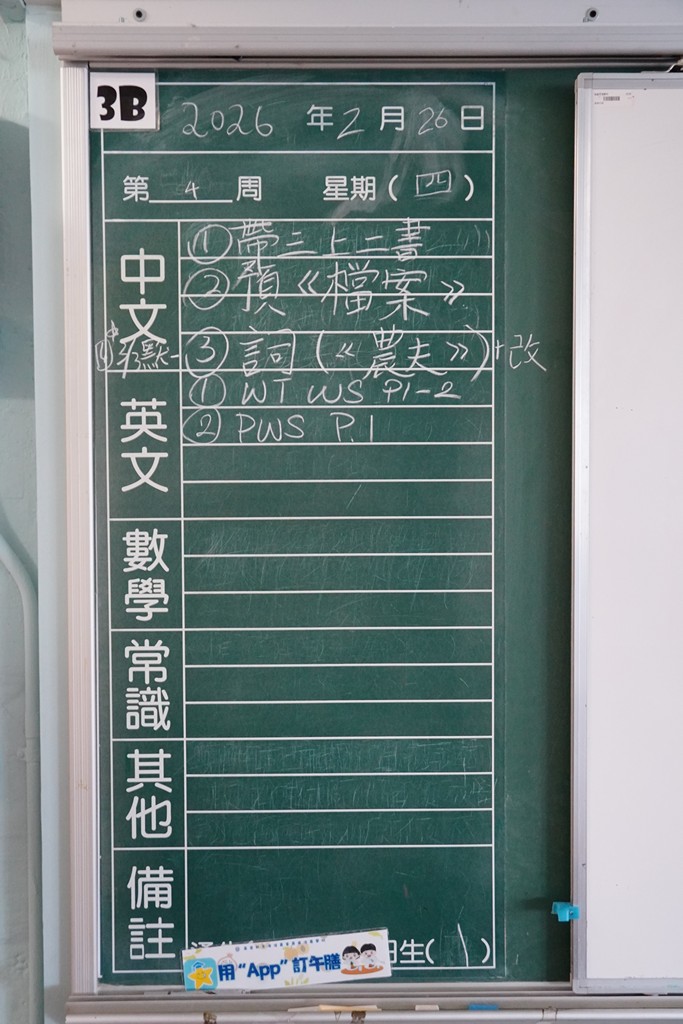 3B
2026 年 2 月 26 日
第 4 周 星期 ( 四 )
中文
① 帶三上二書
② 預《檔案》
③ 詞 (《農夫》) + 改
英文
① WT WS P1-2
② PWS P.1
數學
常識
其他
備註
生( )
用“App”訂午膳